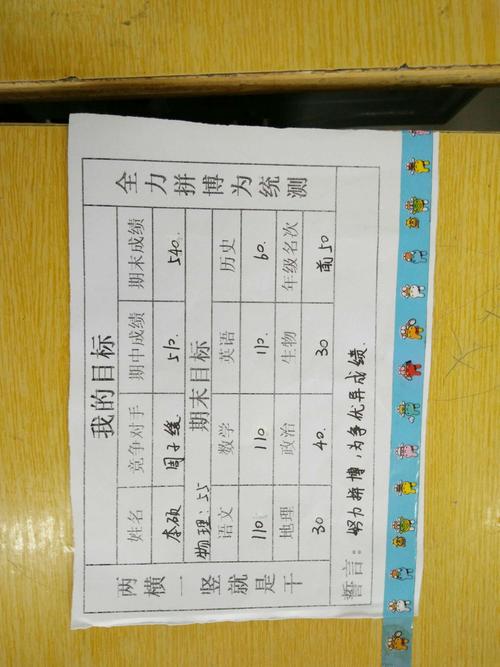 我的目标
两横一竖就是干
全力拼博为统测
姓名 竞争对手 期中成绩 期末成绩
李硕 周子 510. 540.
物理:55 期末目标
语文 数学 英语 历史
110 110 110. 60.
地理 政治 生物 年级名次
30 40. 30 前50
誓言:努力拼搏,为争优异成绩.